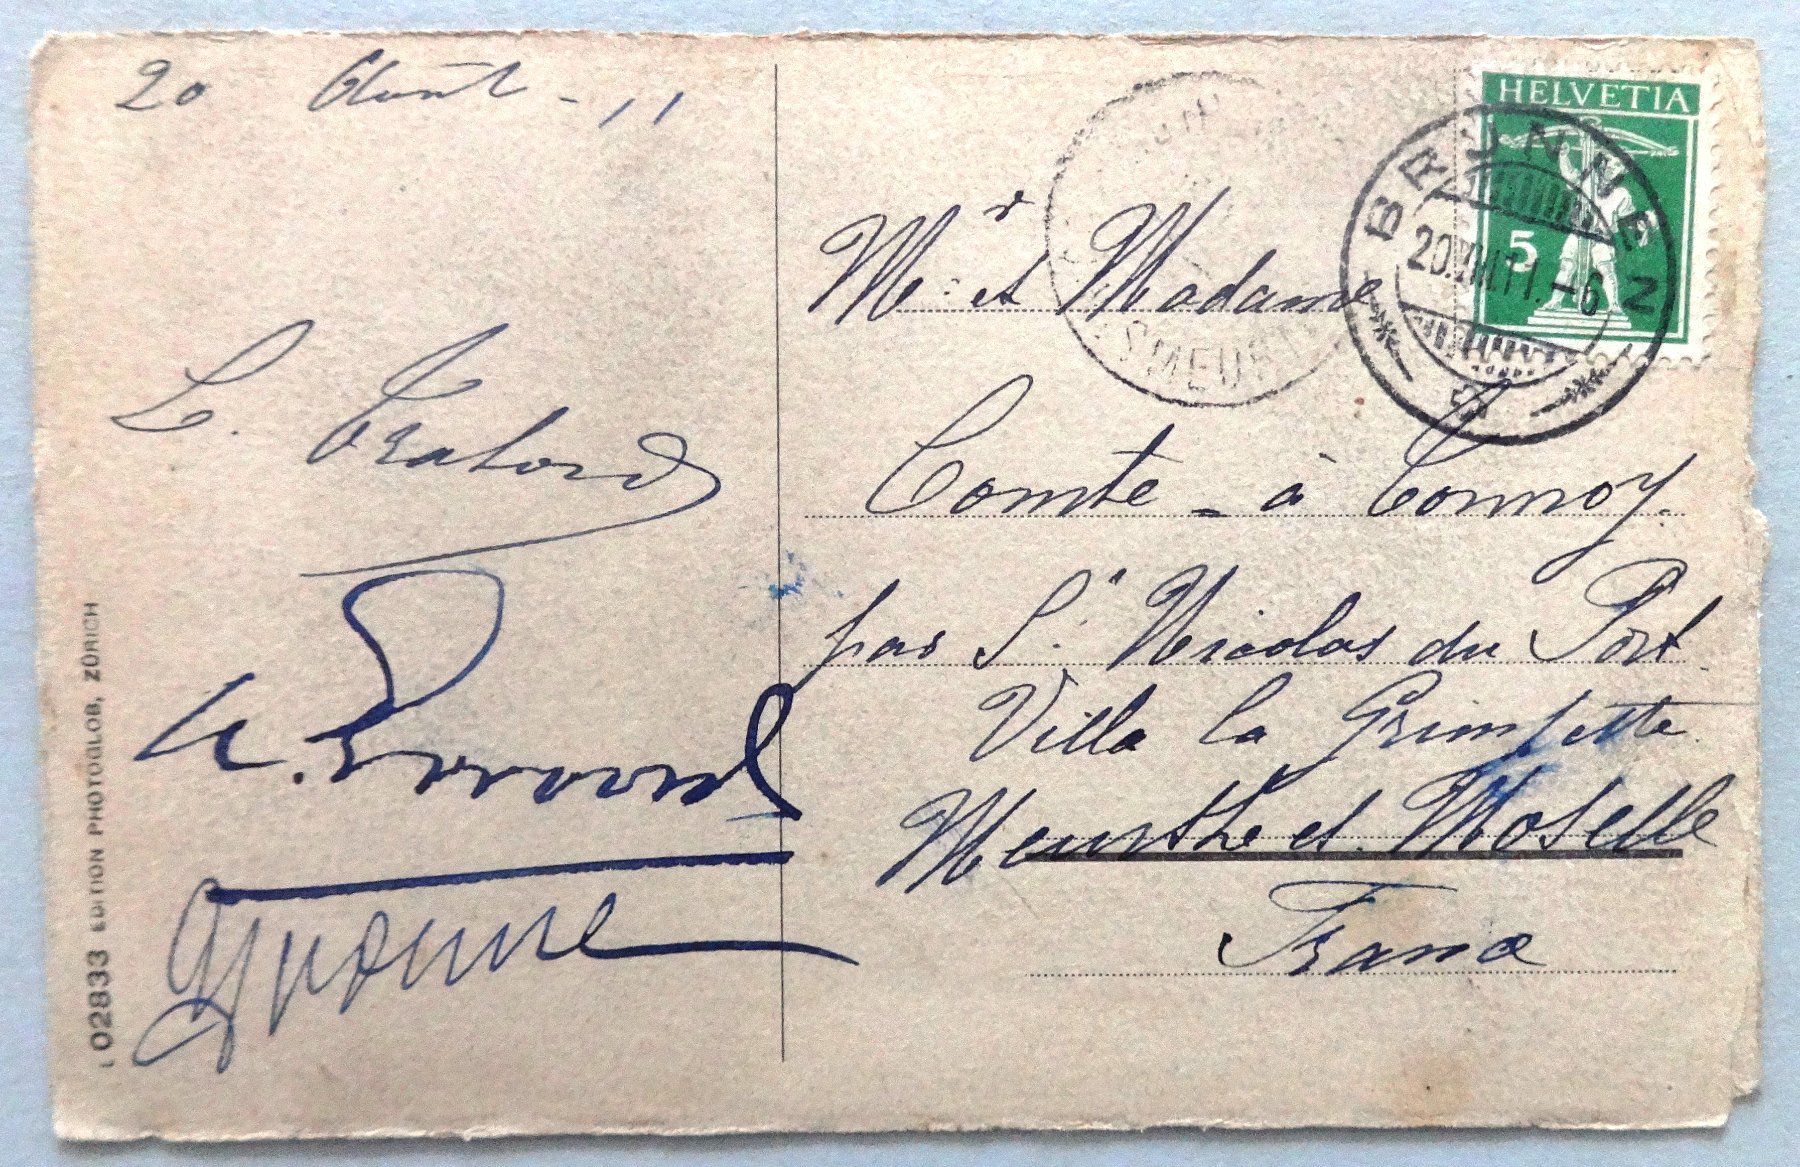 20 Août - 11
L.
Yvonne
L 02833 EDITION PHOTOGLOB, ZÜRICH
HELVETIA
5
BRUNNEN
20.VIII.11.-6
Mr et Madame
Comte - à Tonnoy.
par St Nicolas du Port
Villa la Grimpette
Meurthe et Moselle
France